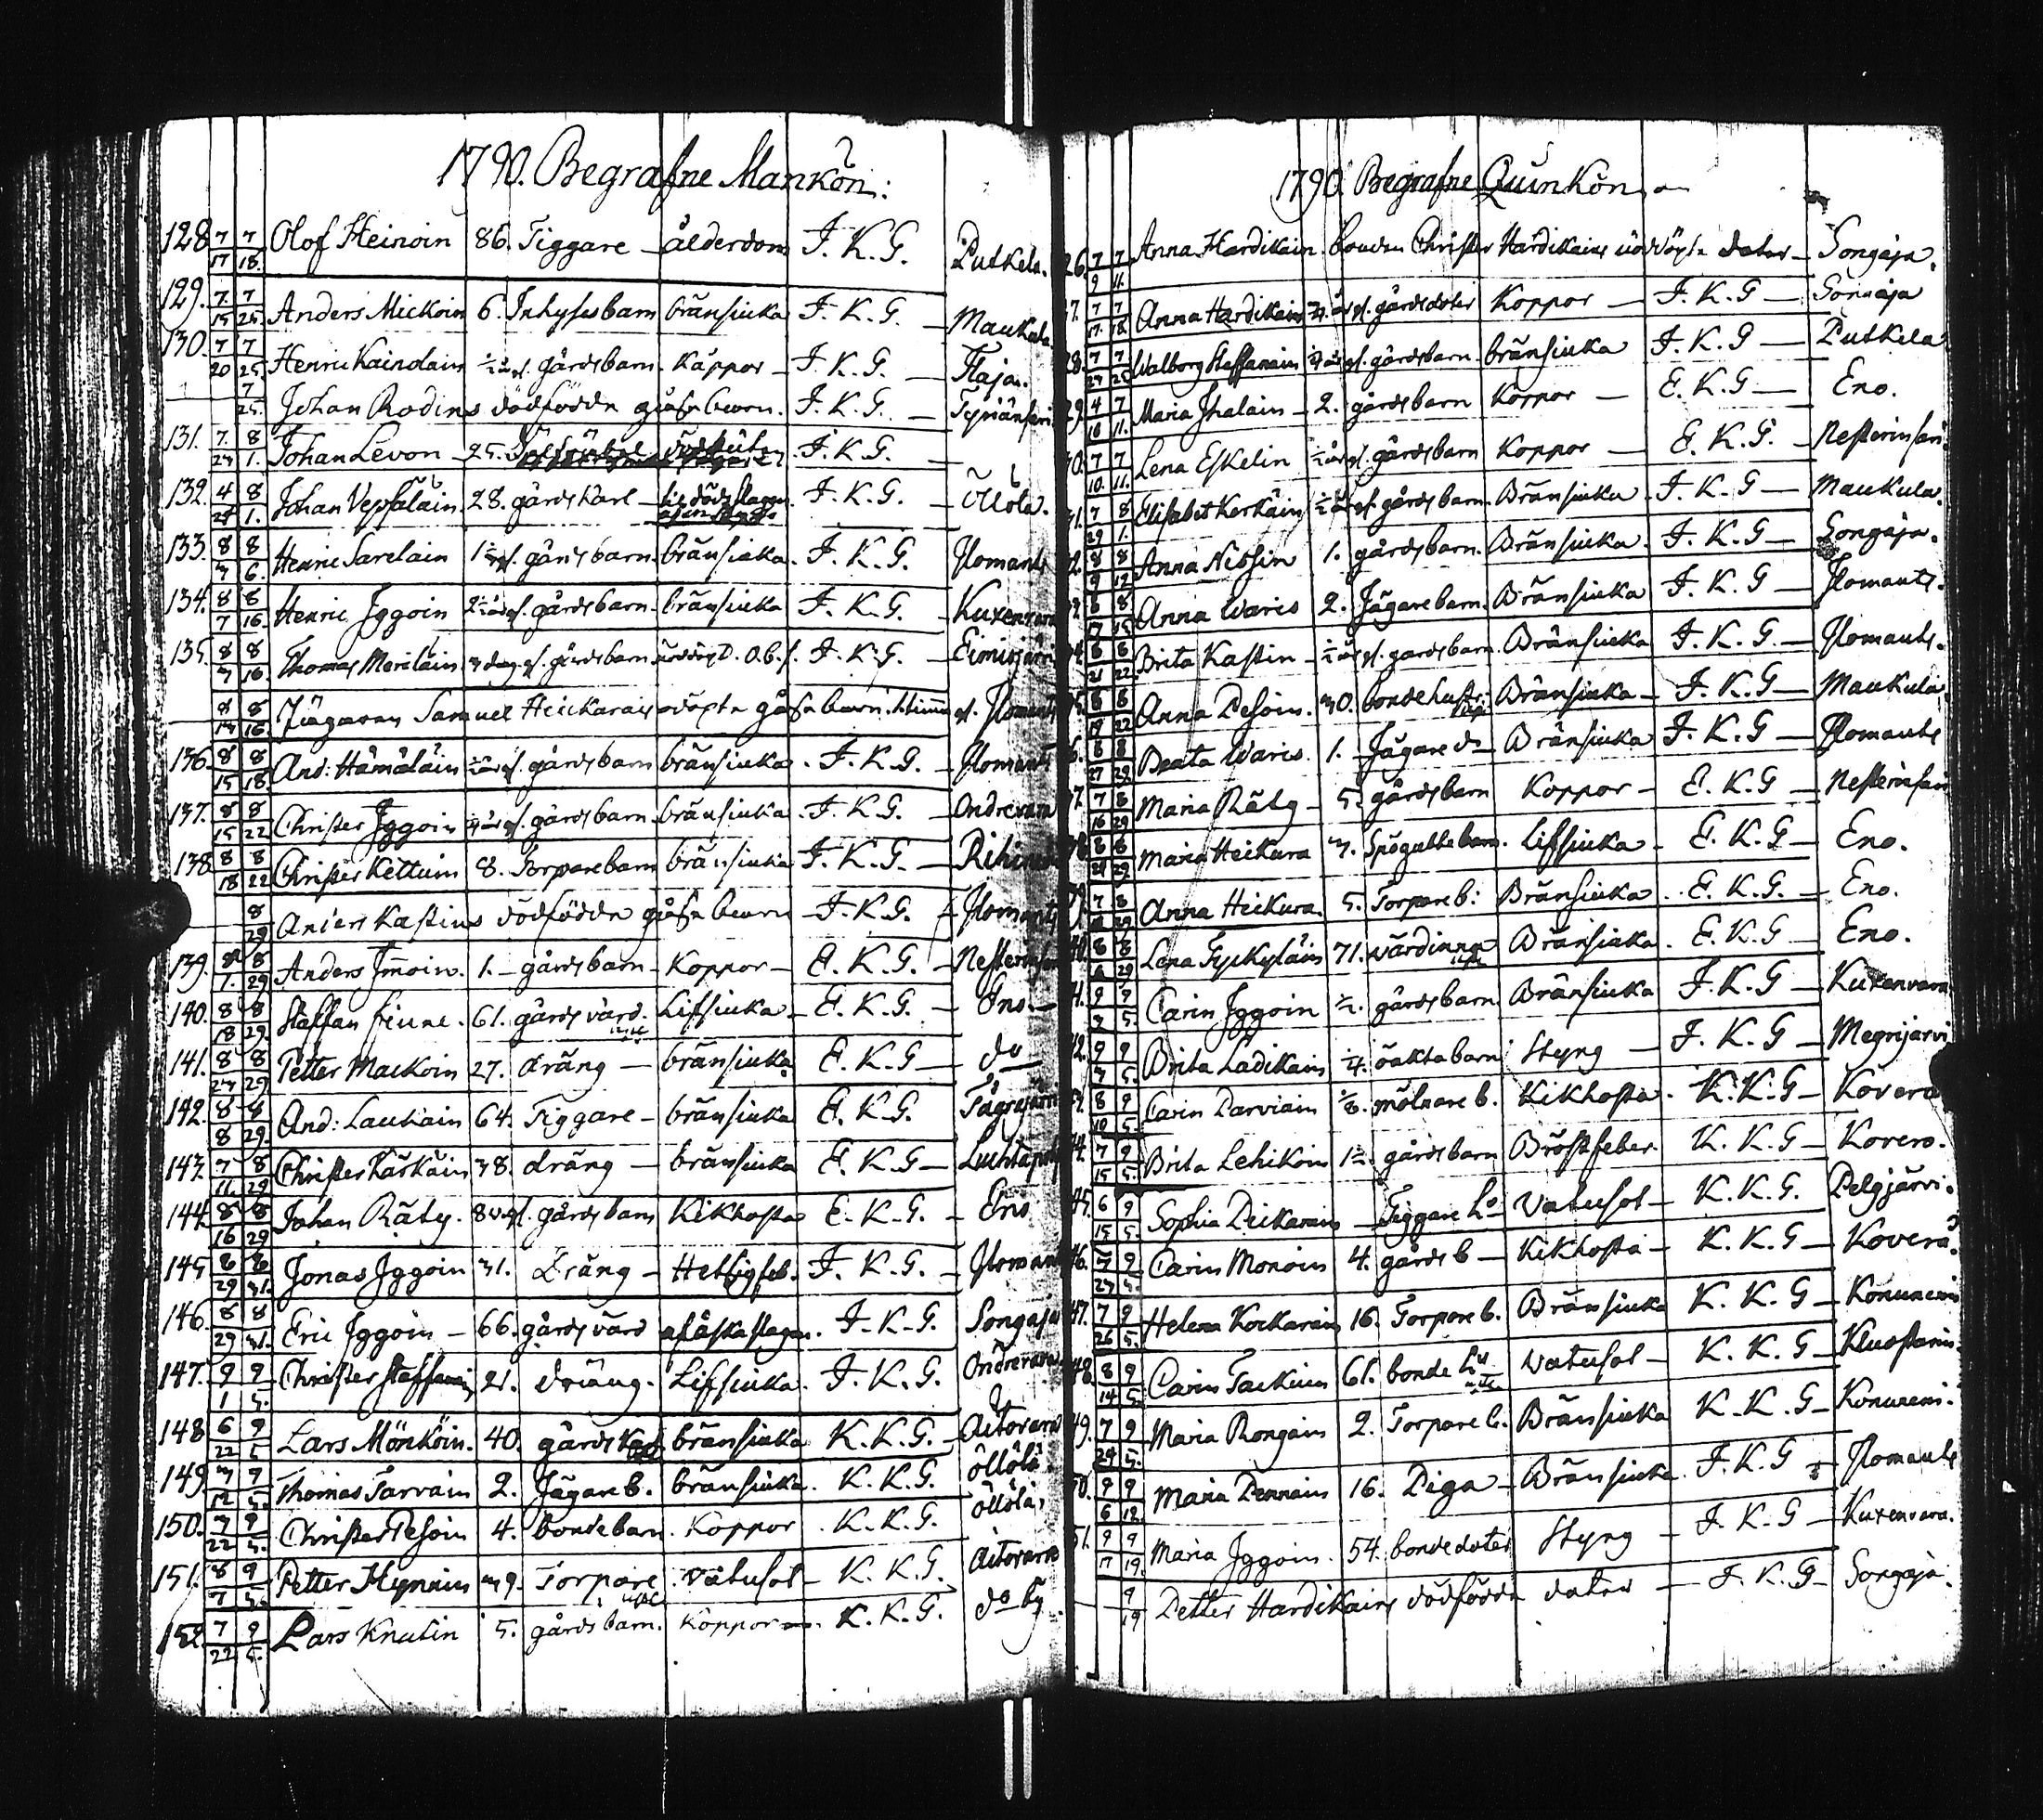 1790. Begrafne Mankön:
128. 7/17 7/18. Olof Heinoin 86. Tiggare - ålderdom J. K. G. Putkela.
129. 7/15 7/25. Anders Mickoin 6. Inhyses barn bränsiuka J. K. G. - Maukula
130. 7/20 7/25. Henric Kainolain 1/2 år gl. gårdsbarn Kåppor - J. K. G. - Haja.
7/25. Johan Rodins dödfödda J. K. G. -
131. 7/27 8/1. Johan Levon - 25. J. K. G. -
132. 4/28 8/1. Johan Vepsäläin 28. gårds Karl - J. K. G. - Öllölä.
133. 8/3 8/6. Henric Sarelain gårdsbarn bränsiuka. J. K. G. Jlomants
134. 8/7 8/16. Henric Jggoin gårdsbarn - bränsiuka J. K. G. - Kuxenvara
135. 8/7 8/16. Thomas Meriläin 3 dag. gl. gårdsbarn J. K. G. - Eimisjärvi
8/14 8/16. Jägaren Samuel barn Jlomants
136. 8/15 8/18. And: Hämäläin gårdsbarn bränsiuka. J. K. G. - Jlomants
137. 8/15 8/22 Christer Jggoin gårdsbarn bränsiuka J. K. G. - Ondrevara
138 8/18 8/22 Christer Kettuin 8. Torpare barn bränsiuka J. K. G. -
8/29 Anders Kastins dödfödda J. K. G. Jlomants
139. 8/7. 8/29 Anders Jmoin. 1. - gårdsbarn - Koppor - E. K. G. -
140. 8/18 8/29. Staffan Siune. 61. gårdsvärd. Lifsiuka - E. K. G. - Eno. -
141. 8/27 8/29 Petter Mackoin 27. dräng - bränsiuka E. K. G - do
142. 8/8 8/29. And: Laukain 64. Tiggare - bränsiuka E. K. G.
143. 7/11. 8/29 Christer Kärkäin 38. dräng - bränsiuka E. K. G -
144. 8/16 8/29 Johan Räty. gårdsbarn Kikhosta E. K. G. - Eno
145 8/29 8/31. Jonas Jggoin 31. Dräng - Hetsig feb. J. K. G. - Jlomants
146. 8/29 8/31. Eric Jggoin - 66. gårdsvärd af åska slagen. J. K. G. Songaja
147. 9/1 9/5. Christer Staffanin 21. dräng. Lifsiuka. J. K. G. Ondrevara
148 6/22 9/5 Lars Mönköin. 40. gårds Karl bränsiuka K. K. G. - Aitovara
149. 7/12 9/5. Thomas Tarvain 2. Jägare b. bränsiuka. K. K. G. öllölä.
150. 7/22 9/5. Christer Pesoin 4. bonde barn. Koppor. K. K. G. öllölä.
151. 8/7 9/5. Petter Hynnin 39. Torpare Vatusot - K. K. G. Aitovara
152. 7/22 9/5. Lars Knutin 5. gårdsbarn. Koppor K. K. G. do by
1790. Begrafne Quinkön
26. 7/9 7/11. Anna Hardikain. bonden Christer Hardikains döpta doter - Songaja.
7. 7/17 7/18. Anna Hardikain gårdsdoter Koppor - J. K. G - Songaja
28. 7/24 7/25 Walborg Staffanin gårdsbarn. bränsiuka J. K. G - Putkela
29. 4/16 7/11. Maria Jhalain - 2. gårdsbarn Koppor - E. K. G - Eno.
30. 7/10. 7/11. Lena Eskelin gårdsbarn Koppor - E. K. G. -
31. 7/29 8/1. Elisabet Kerkäin gårdsbarn. Bränsiuka. J. K. G - Maukula.
32. 8/9 8/12 Anna Nissin 1. gårdsbarn. Bränsiuka. J. K. G - Songaja.
8/15 Anna Waris 2. Jägare barn. Bränsiuka J. K. G - Jlomants.
34. 8/21 8/22. Brita Kastin - gårdsbarn. Bränsiuka J. K. G. - Jlomants.
35. 8/19 8/22 Anna Pesoin. 30. bonde hustr. Bränsiuka - J. K. G - Maukula
36. 8/27 8/29. Beata Waris. 1. Jägare d. Bränsiuka J. K. G - Jlomants
37. 7/16 8/29 Maria Räty - 5. gårdsbarn Koppor - E. K. G -
38. 8/24 8/29. Maria Heikura 3. barn. Lifsiuka - E. K. G - Eno.
39. 7 8/29 Anna Heikura. 5. Torpare b: Bränsiuka. E. K. G. - Eno.
40. 8/6 8/29 Lena Tyckyläin 71. värdinna Bränsiuka. E. K. G - Eno.
41. 9/3 9/5. Carin Jggoin 1/2. gårdsbarn Bränsiuka J. K. G - Kuxenvara
42. 9/3 9/5. Brita Ladikain 1/4. oäkta barn Styng - J. K. G - Megrijärvi
8/10 9/5. Carin Parviain mölnare b. Kikhosta. K. K. G - Kovero
44. 7/15 9/5. Brita Lehikoin gårdsbarn Bröstfeber. K. K. G - Kovero.
45. 6/15 9/5. Sophia Pickarain - Tiggare Vatusot - K. K. G. Pelgjärvi.
46. 7/23 9/5. Carin Monoin 4. gårds b - Kikhosta - K. K. G - Kovero.
47. 7/26 9/5. Helena Kockarain 16. Torpare b. Bränsiuka K. K. G - Konuniemi
48. 8/14 9/5. Carin Tackuin 61. bonde Vatusot - K. K. G -
49. 7/24 9/5. Maria Rongain 2. Torpare b. Bränsiuka K. K. G - Konuniemi.
50. 9/6 9/12. Maria Pennain 16. Piga - Bränsiuka. J. K. G - Jlomants
51. 9/17 9/19. Maria Jggoin. 54. bonde doter Styng - J. K. G - Kuxenvara.
9/19 Petter Hardikains dödfödda doter - J. K. G - Songaja.